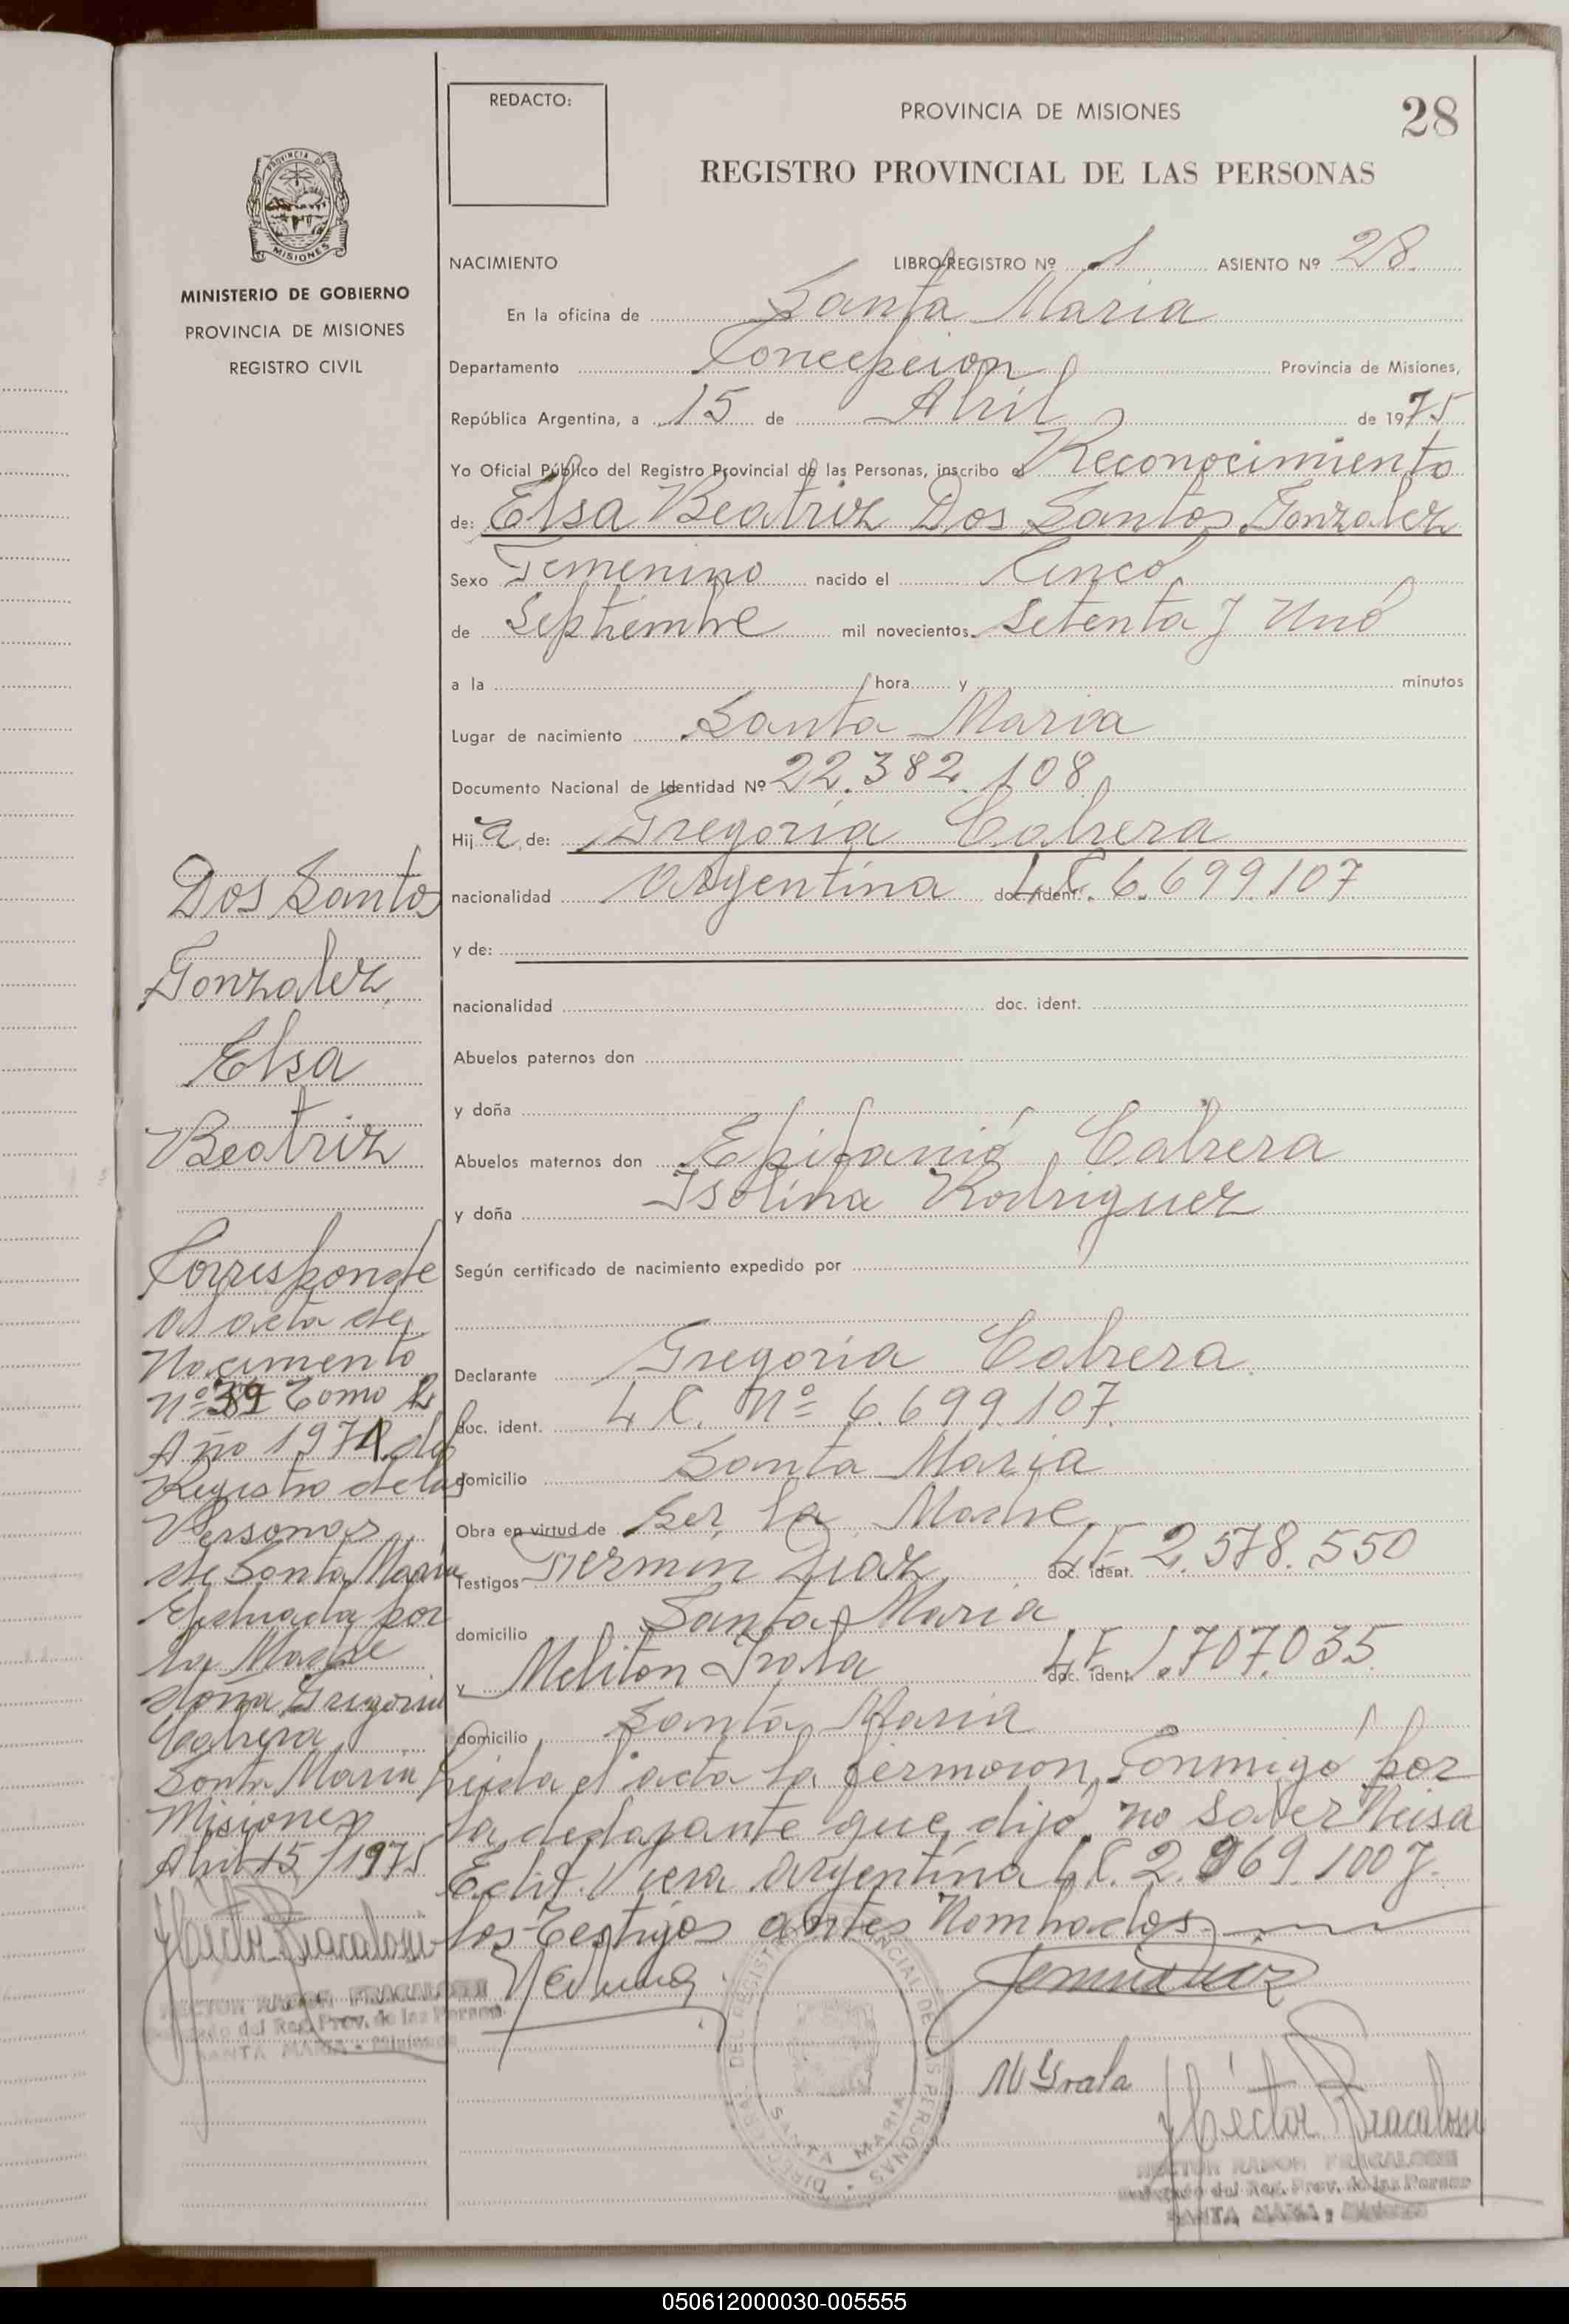 REDACTO:
PROVINCIA DE MISIONES
28
REGISTRO PROVINCIAL DE LAS PERSONAS
PROVINCIA DE
MISIONES
MINISTERIO DE GOBIERNO
PROVINCIA DE MISIONES
REGISTRO CIVIL
NACIMIENTO LIBRO-REGISTRO Nº 1 ASIENTO Nº 28
En la oficina de Santa Maria
Departamento Concepcion Provincia de Misiones,
República Argentina, a 15 de Abril de 1975
Yo Oficial Público del Registro Provincial de las Personas, inscribo el Reconocimiento
de: Elsa Beatriz Dos Santos Gonzalez
Sexo Femenino nacido el Cinco
de Septiembre mil novecientos Setenta y Uno
a la hora y minutos
Lugar de nacimiento Santa Maria
Documento Nacional de Identidad Nº 22.382.108
Hija de: Gregoria Cabrera
nacionalidad Argentina doc. ident. L.C. 6.699.107
y de:
nacionalidad doc. ident.
Abuelos paternos don
y doña
Abuelos maternos don Epifanio Cabrera
y doña Isolina Rodriguez
Según certificado de nacimiento expedido por
Declarante Gregoria Cabrera
doc. ident. L C. Nº 6.699.107.
domicilio Santa Maria
Obra en virtud de Ser la Madre
Testigos Fermin Diaz doc. ident. L E 2.578.550
domicilio Santa Maria
y Meliton Irala doc. ident. L E 1.707.035
domicilio Santa Maria
Leida el acta la firmaron Conmigo por
la declarante que dijo no saber Neisa
Edit Viera Argentina L C. 2.969.100 y
los Testigos antes Nombrados
M Yrala
Héctor Fracalossi
HECTOR RAMON FRACALOSSI
del Reg. Prov. de las Person
SANTA MARIA - MISIONES
Dos Santos
Gonzalez
Elsa
Beatriz
Corresponde
al acta de
Nacimento
Nº 39 Tomo
Año 1971 del
Registro de las
Personas
de Santa Maria
Efectuada por
la Madre
doña Gregoria
Cabrera
Santa Maria
Misiones
Abril 15/1975
Héctor Fracalossi
HECTOR RAMON FRACALOSSI
del Reg. Prov. de las Person
SANTA MARIA - Misiones
SANTA MARIA
050612000030-005555